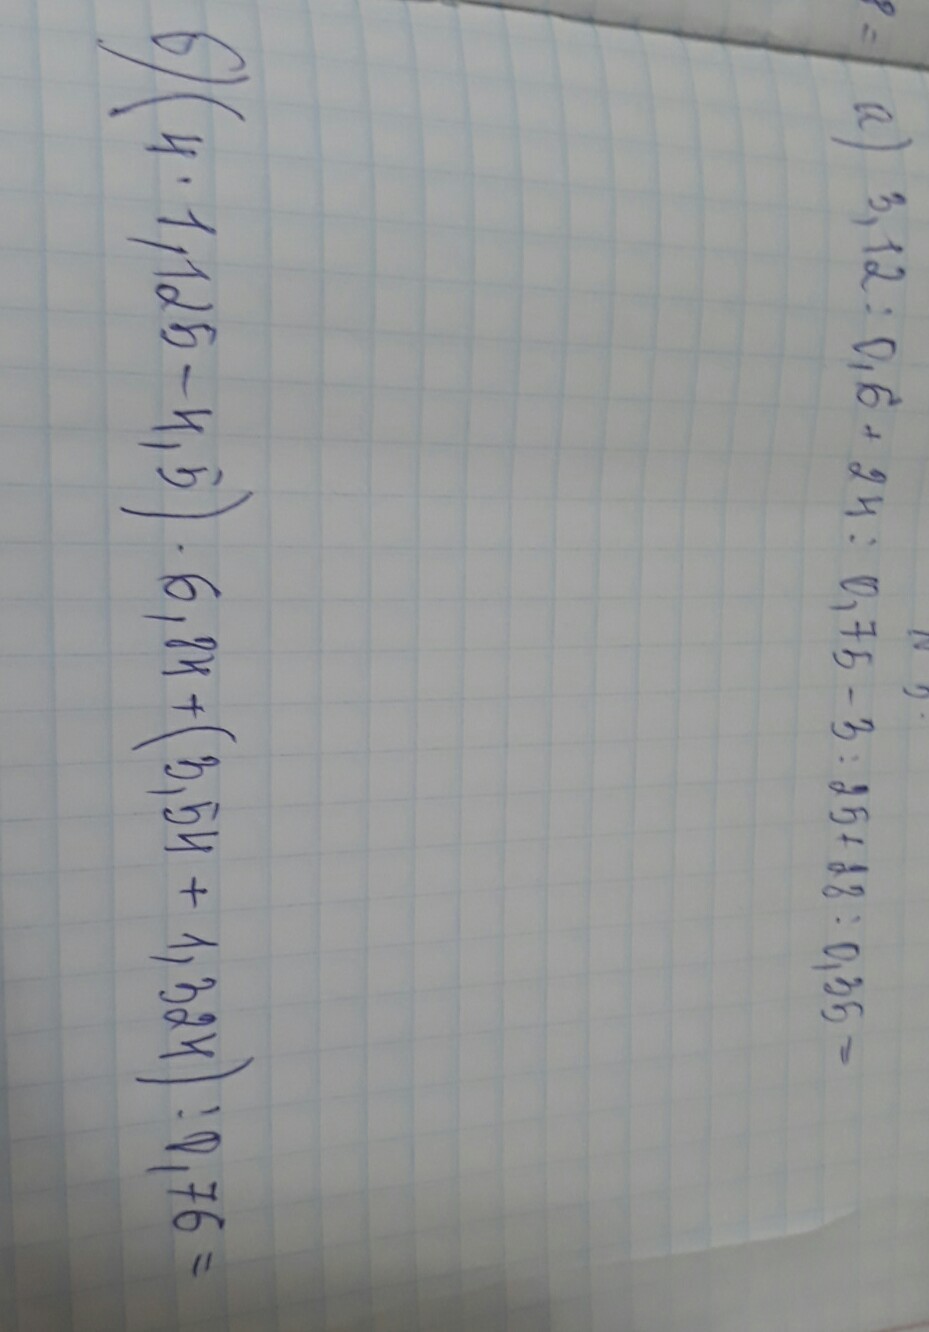 8 =
N 5.
а) 3,12 : 0,6 + 24 : 0,75 - 3 : 25 + 28 : 0,35 =
б) (4 · 1,125 - 4,5) · 6,84 + (3,54 + 1,324) : 0,76 =